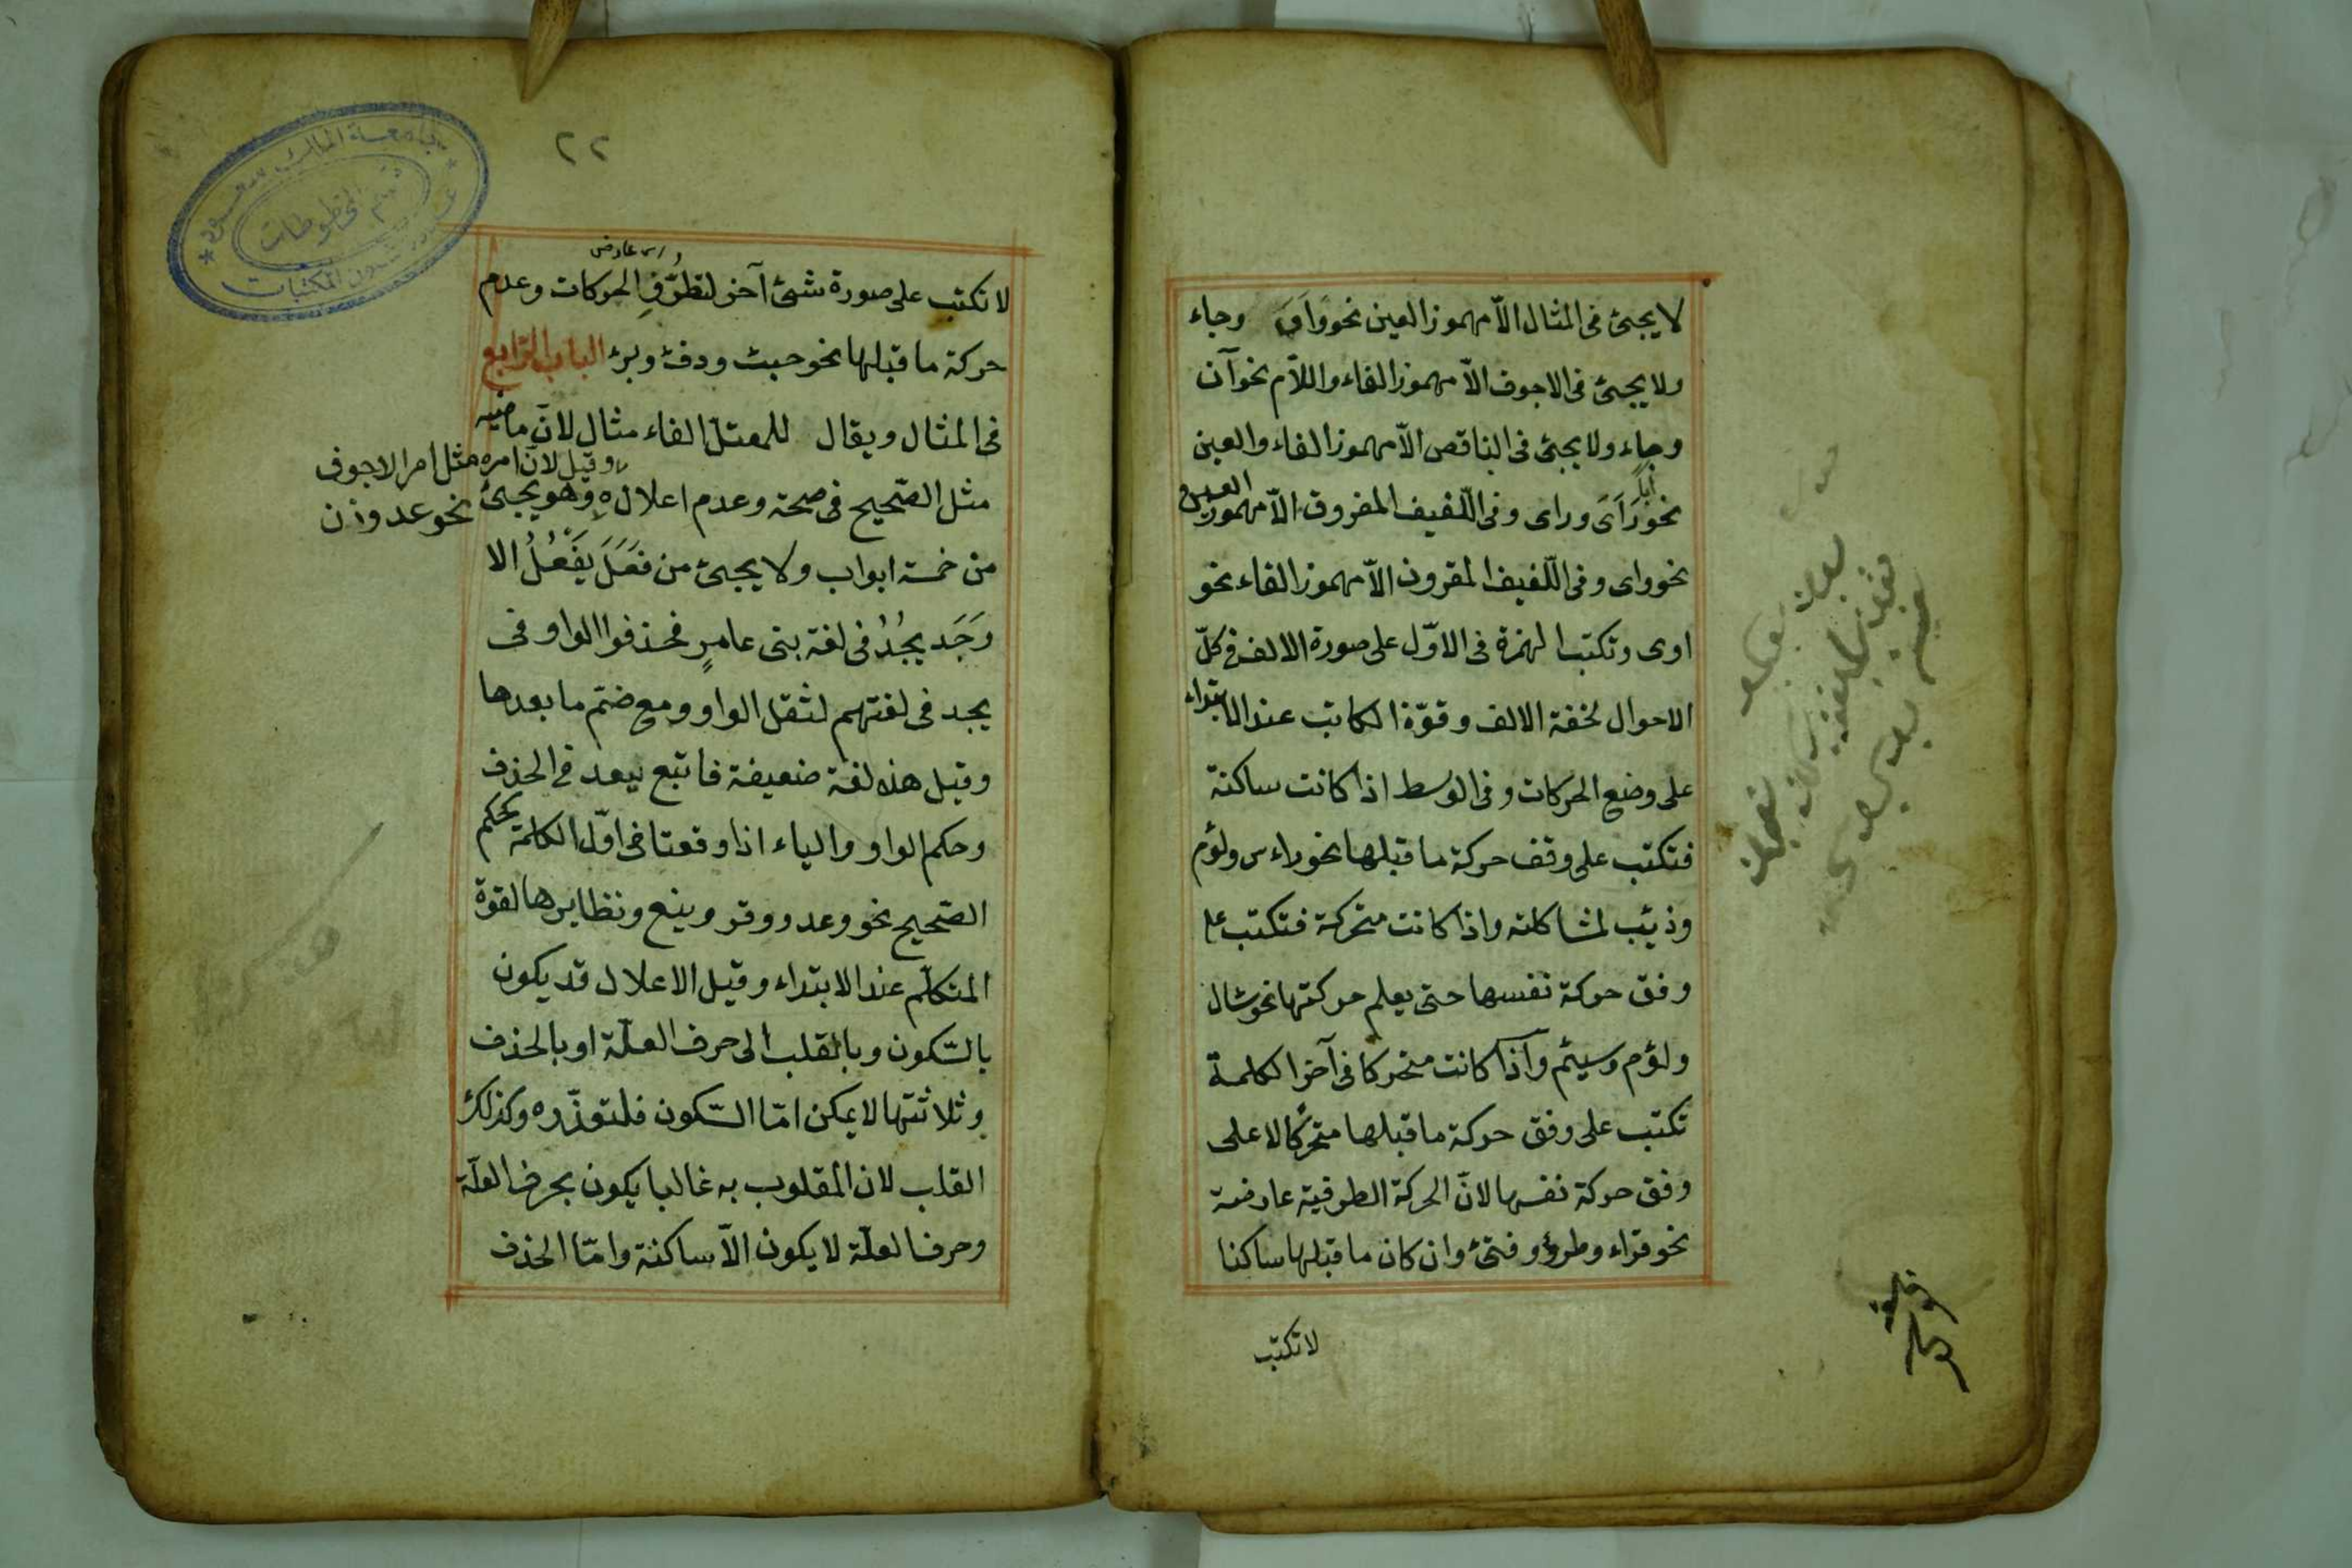 لا يجئ فى المثال الاّ مهموز العين نحو وَاَىَ وجاء
ولا يجئ فى الاجوف الاّ مهموز الفاء واللاّم نحو آن
وجاء ولا يجئ فى الناقص الاّ مهموز الفاء والعين
نحو رَآىَ وراى وفى اللّفيف المفروق الاّ مهموز العين
نحو واى وفى اللّفيف المقرون الاّ مهموز الفاء نحو
اوى وتكتب الهمزة فى الاوّل على صورة الالف فى كلّ
الاحوال لخفة الالف وقوّة الكاتب عند الابتداء
على وضع الحركات وفى الوسط اذا كانت ساكنة
فتكتب على وقف حركة ما قبلها نحو راءس ولؤم
وذئب لمشاكلته واذا كانت متحركة فتكتب على
وفق حركة نفسها حتى يعلم حركتها نحو سال
ولؤم وسيئم واذا كانت متحركا فى آخر الكلمة
تكتب على وفق حركة ما قبلها متحركا لا على
وفق حركة نفسها لانّ الحركة الطرفية عارضة
نحو قراء وطرؤ وفتئ وان كان ما قبلها ساكنا
لا تكتب
٢٢
جامعة الملك سعود
قسم المخطوطات
عمادة شئون المكتبات
لا تكتب على صورة شئ آخر لتطرُّفِ الحركات وعدم
حركة ما قبلها نحو خبث ودفئ وبرئ الباب الرّابع
فى المثال ويقال للمعتلّ الفاء مثال لانّ ماضيه
وقيل لانّ امره مثل امر الاجوف
نحو عد وزن
مثل الصّحيح فى صحة وعدم اعلاله وهو يجئ
من خمسة ابواب ولا يجئ من فَعَلَ يَفْعُلُ الا
وَجَد يجُدُ فى لغة بنى عامرٍ فحذفوا الواو فى
يجد فى لغتهم لثقل الواو ومع ضمّ ما بعدها
وقيل هذه لغة ضعيفة فاتبع ليعد فى الحذف
وحكم الواو والياء اذا وقعتا فى اوّل الكلمة كحكم
الصّحيح نحو وعد ووقر وينع ونظايرها لقوة
المتكلّم عند الابتداء وقيل الاعلال قد يكون
بالسّكون وبالقلب الى حرف العلّة او بالحذف
وثلاثتها لا يمكن امّا السّكون فلتعذّره وكذلك
القلب لان المقلوب به غالبا يكون بحرف العلّة
وحرف العلّة لا يكون الاّ ساكنة وامّا الحذف